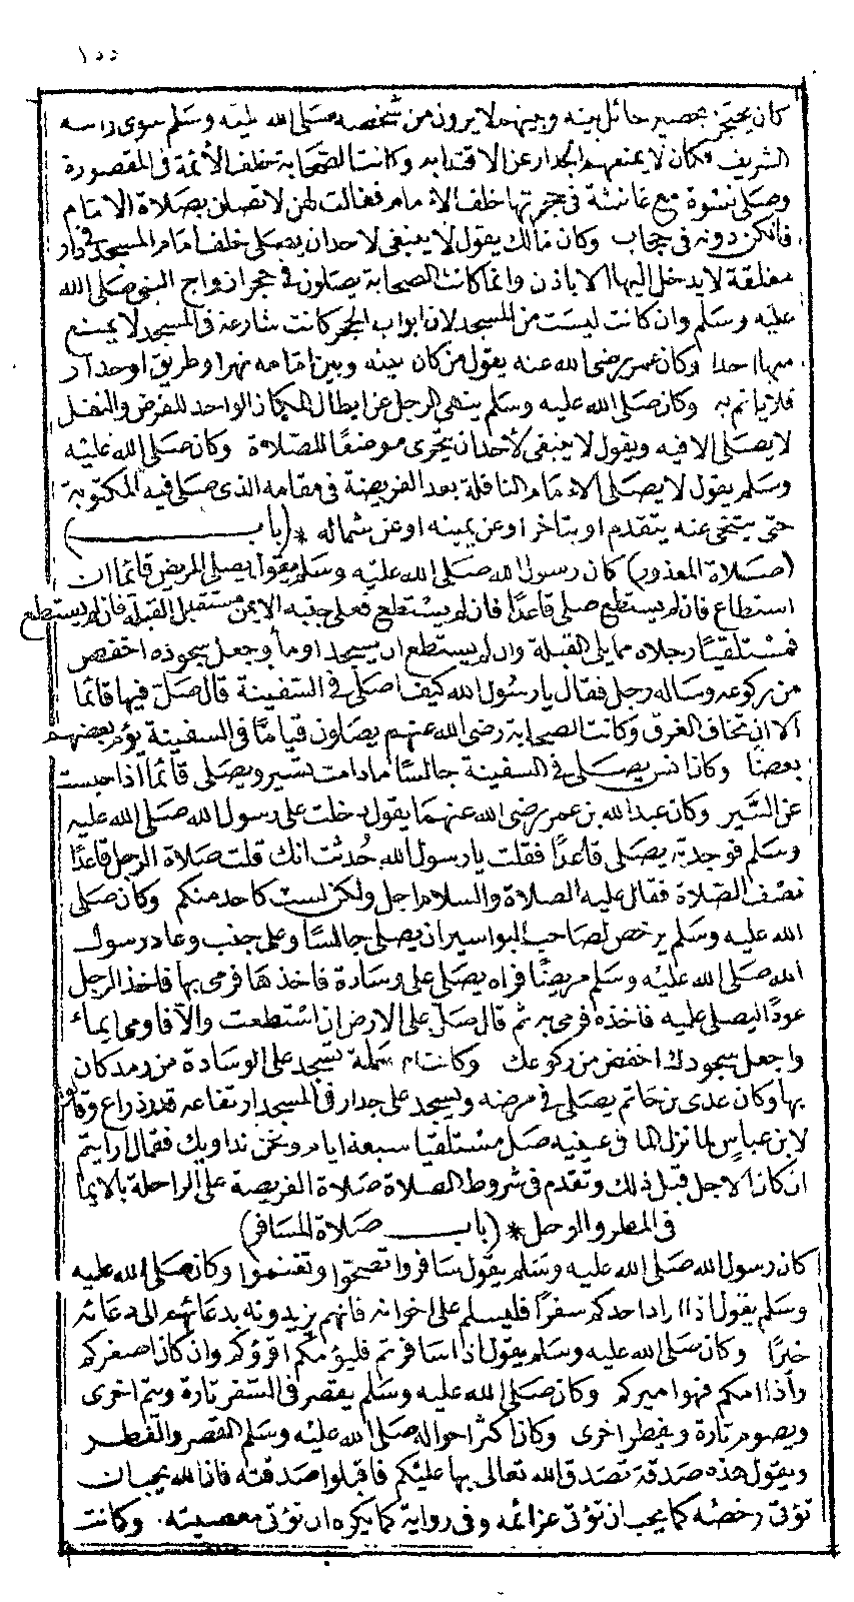 ١٥٥
كان يحتجز بحصير حائل بينه وبينهم لا يرون من شخصه صلى الله عليه وسلم سوى راسه
الشريف فكان لا يمنعهم الجدار عن الاقتداء به وكانت الصحابة تصلى خلف الأئمة فى المقصورة
وصلى نسوة مع عائشة فى حجرتها خلف الامام فقالت لهن لا تصلن بصلاة الامام
فانكن دونه فى حجاب وكان مالك يقول لا ينبغى لاحد ان يصلى خلف امام المسجد فى دار
مغلقة لا يدخل اليها الا باذن وانما كانت الصحابة يصلون فى حجر ازواج النبى صلى الله
عليه وسلم وان كانت ليست من المسجد لان ابواب الحجر كانت شارعة فى المسجد لا يمنع
منها احدا وكان عمر رضى الله عنه يقول من كان بينه وبين امامه نهر او طريق او جدار
فلا ياتم به وكان صلى الله عليه وسلم ينهى الرجل عن ابطال المكان الواحد للفرض والنفل
لا يصلى الا فيه ويقول لا ينبغى لأحد ان يتحرى موضعًا للصلاة وكان صلى الله عليه
وسلم يقول لا يصلى الامام النافلة بعد الفريضة فى مقامه الذى صلى فيه المكتوبة
حتى يتنحى عنه يتقدم او يتاخر او عن يمينه او عن شماله * (باب)
(صلاة المعذور) كان رسول الله صلى الله عليه وسلم يقول يصلى المريض قائما ان
استطاع فان لم يستطع صلى قاعدًا فان لم يستطع فعلى جنبه الايمن مستقبل القبلة فان لم يستطع
فمستلقيًا رجلاه مما يلى القبلة وان لم يستطع ان يسجد اومأ وجعل سجوده اخفض
من ركوعه وساله رجل فقال يا رسول الله كيف اصلى فى السفينة قال صل فيها قائما
الا ان تخاف الغرق وكانت الصحابة رضى الله عنهم يصلون قيامًا فى السفينة يؤم بعضهم
بعضا وكان انس يصلى فى السفينة جالسًا ما دامت تسير ويصلى قائما اذا حبست
عن السير وكان عبد الله بن عمر رضى الله عنهما يقول دخلت على رسول الله صلى الله عليه
وسلم فوجدته يصلى قاعدًا فقلت يا رسول الله حُدثت انك قلت صلاة الرجل قاعدًا
نصف الصلاة فقال عليه الصلاة والسلام اجل ولكن لست كاحد منكم وكان صلى
الله عليه وسلم يرخص لصاحب البواسير ان يصلى جالسًا وعلى جنب وعاد رسول
الله صلى الله عليه وسلم مريضًا فراه يصلى على وسادة فاخذها فرمى بها فاخذ الرجل
عودًا ليصلى عليه فاخذه فرمى به ثم قال صل على الارض ان استطعت والا فاومى ايماء
واجعل سجودك اخفض من ركوعك وكانت ام سلمة تسجد على الوسادة من رمد كان
بها وكان عدى بن حاتم يصلى فى مرضه ويسجد على جدار فى المسجد ارتفاعه قدر ذراع وقالوا
لابن عباس لما نزل الما فى عينيه صل مستلقيا سبعة ايام ونحن نداويك فقال ارايتم
ان كان الاجل قبل ذلك وتقدم فى شروط الصلاة صلاة الفريضة على الراحلة بالايما
فى المطر والوحل * (باب صلاة المسافر)
كان رسول الله صلى الله عليه وسلم يقول سافروا تصحوا وتغنموا وكان صلى الله عليه
وسلم يقول اذا اراد احدكم سفرًا فليسلم على اخوانه فانهم يزيدونه بدعائهم الى دعائه
خيرًا وكان صلى الله عليه وسلم يقول اذا سافرتم فليؤمكم اقرؤكم وان كان اصغركم
واذا امكم فهو اميركم وكان صلى الله عليه وسلم يقصر فى السفر تارة ويتم اخرى
ويصوم تارة ويفطر اخرى وكان اكثر احواله صلى الله عليه وسلم القصر والفطر
ويقول هذه صدقة تصدق الله تعالى بها عليكم فاقبلوا صدقته فان الله يحب ان
تؤتى رخصه كما يحب ان تؤتى عزائمه وفى رواية كما يكره ان تؤتى معصيته. وكانت